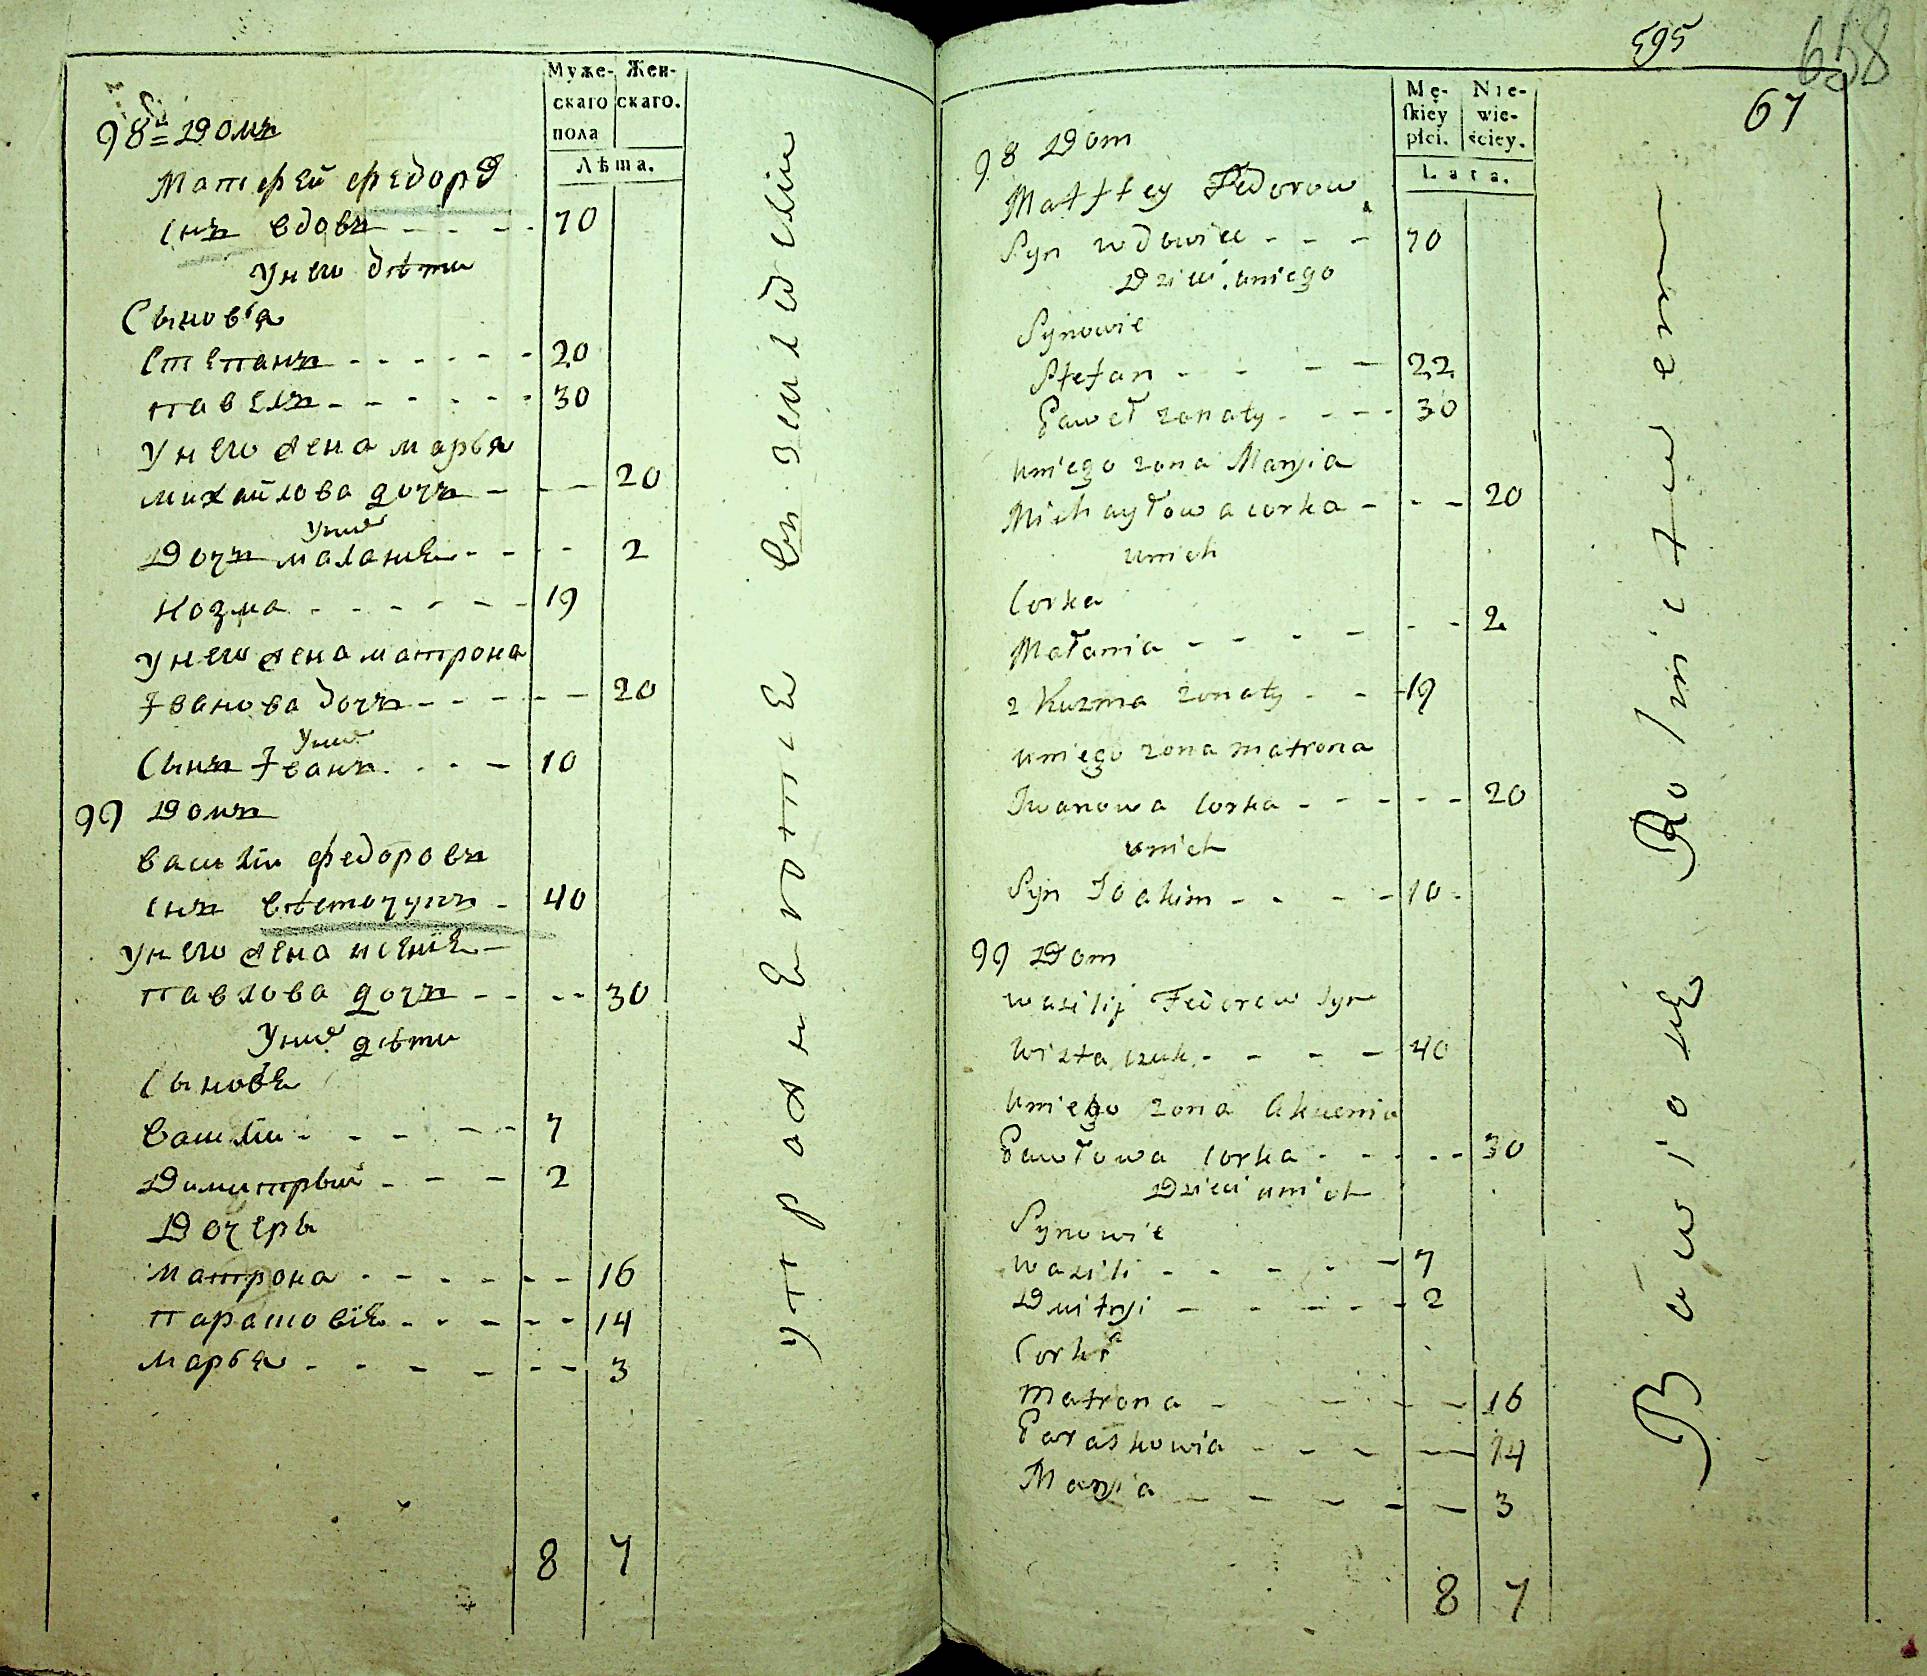 Муже- Жен-
скаго скаго.
пола
Лѣта.
98й Домъ
Матфей Федоров
снъ вдовъ - - - - 70
У него дѣти
Сыновья
Степанъ - - - - - - 20
Павелъ - - - - - - 30
У него жена марья
михайлова дочъ - - - 20
У них
Дочъ маланiя - - - 2
Козма - - - - - - 19
У него жена матрона
Iванова дочъ - - - - - - 20
У них
Сынъ Iванъ - - - 10
99 Домъ
василiй федоровъ
снъ вѣсточукъ - 40
У него жена ксенiя -
павлова дочъ - - - - 30
У них дѣти
Сыновья
Василiй - - - - - 7
Димитрый - - - 2
Дочеры
Матрона - - - - - - 16
парасковiя - - - - - 14
марья - - - - - - 3
8 7
упражняется въ земледелiи
595
658
67
Mę- Nie-
skiey wie-
płci. ściey.
Lata.
98 Dom
Matffey Fedorow
Syn wdowiec - - - 70
Dzieci uniego
Synowie
Stefan - - - - 22
Paweł zonaty - - - - 30
uniego zona Maryia
Michayłowa corka - - - 20
unich
Corka
Małania - - - - - - 2
2 Kuzma zonaty - - - 19
uniego zona matrona
Iwanowa corka - - - - - 20
unich
Syn Ioakim - - - - 10
99 Dom
wasilij Fedorow syn
Wistaczuk - - - - 40
uniego zona Akxenia
Pawłowa corka - - - - - 30
Dzieci unich
Synowie
wasili - - - - - 7
Dmitryi - - - - - 2
Corka
Matrona - - - - - 16
Paraskowia - - - - 14
Maryia - - - - - - 3
8 7
Bawi się Rolnictwem